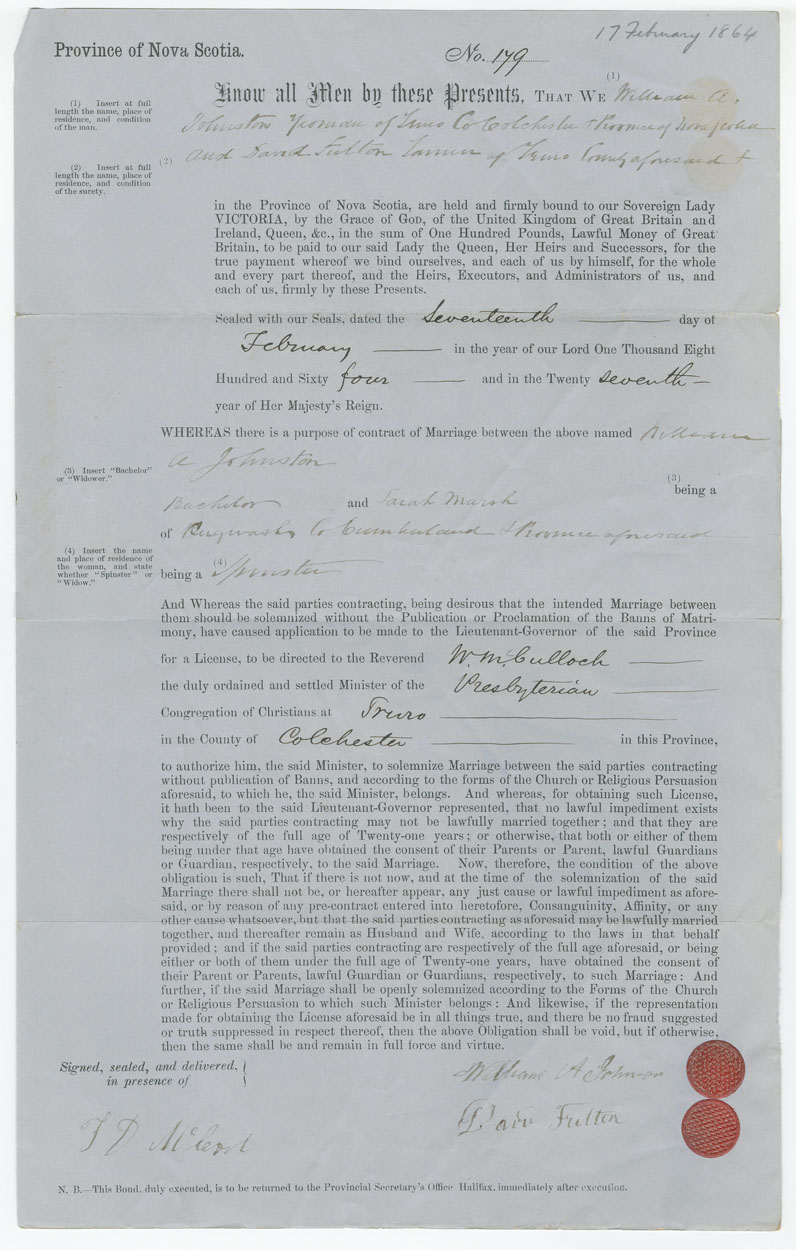 17 February 1864
Province of Nova Scotia.
No. 179
(1)
Know all Men by these Presents, THAT WE William A.
(1) Insert at full
length the name, place of
residence, and condition
of the man.
Johnston Yeoman of Truro Co Colchester & Province of Nova Scotia
(2)
and David Fulton of Truro County aforesaid +
(2) Insert at full
length the name, place of
residence, and condition
of the surety.
in the Province of Nova Scotia, are held and firmly bound to our Sovereign Lady
VICTORIA, by the Grace of GOD, of the United Kingdom of Great Britain and
Ireland, Queen, &c., in the sum of One Hundred Pounds, Lawful Money of Great
Britain, to be paid to our said Lady the Queen, Her Heirs and Successors, for the
true payment whereof we bind ourselves, and each of us by himself, for the whole
and every part thereof, and the Heirs, Executors, and Administrators of us, and
each of us, firmly by these Presents.
Sealed with our Seals, dated the Seventeenth day of
February in the year of our Lord One Thousand Eight
Hundred and Sixty four and in the Twenty seventh
year of Her Majesty's Reign.
WHEREAS there is a purpose of contract of Marriage between the above named William
A Johnston
(3) Insert "Bachelor"
or "Widower."
(3)
being a
Bachelor and Sarah Marsh
of Pugwash Co Cumberland & Province aforesaid
(4) Insert the name
and place of residence of
the woman, and state
whether "Spinster" or
"Widow."
(4)
being a Spinster
And Whereas the said parties contracting, being desirous that the intended Marriage between
them should be solemnized without the Publication or Proclamation of the Banns of Matri-
mony, have caused application to be made to the Lieutenant-Governor of the said Province
for a License, to be directed to the Reverend W. McCulloch
the duly ordained and settled Minister of the Presbyterian
Congregation of Christians at Truro
in the County of Colchester in this Province,
to authorize him, the said Minister, to solemnize Marriage between the said parties contracting
without publication of Banns, and according to the forms of the Church or Religious Persuasion
aforesaid, to which he, the said Minister, belongs. And whereas, for obtaining such License,
it hath been to the said Lieutenant-Governor represented, that no lawful impediment exists
why the said parties contracting may not be lawfully married together; and that they are
respectively of the full age of Twenty-one years; or otherwise, that both or either of them
being under that age have obtained the consent of their Parents or Parent, lawful Guardians
or Guardian, respectively, to the said Marriage. Now, therefore, the condition of the above
obligation is such, That if there is not now, and at the time of the solemnization of the said
Marriage there shall not be, or hereafter appear, any just cause or lawful impediment as afore-
said, or by reason of any pre-contract entered into heretofore, Consanguinity, Affinity, or any
other cause whatsoever, but that the said parties contracting as aforesaid may be lawfully married
together, and thereafter remain as Husband and Wife, according to the laws in that behalf
provided; and if the said parties contracting are respectively of the full age aforesaid, or being
either or both of them under the full age of Twenty-one years, have obtained the consent of
their Parent or Parents, lawful Guardian or Guardians, respectively, to such Marriage: And
further, if the said Marriage shall be openly solemnized according to the Forms of the Church
or Religious Persuasion to which such Minister belongs: And likewise, if the representation
made for obtaining the License aforesaid be in all things true, and there be no fraud suggested
or truth suppressed in respect thereof, then the above Obligation shall be void, but if otherwise,
then the same shall be and remain in full force and virtue.
Signed, sealed, and delivered,
in presence of
William A Johnson
Fulton
T D McLeod
N. B.—This Bond, duly executed, is to be returned to the Provincial Secretary's Office Halifax, immediately after execution.